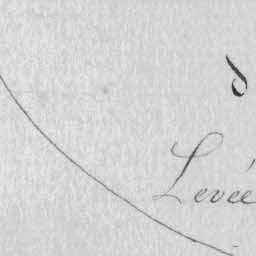 d
Levée